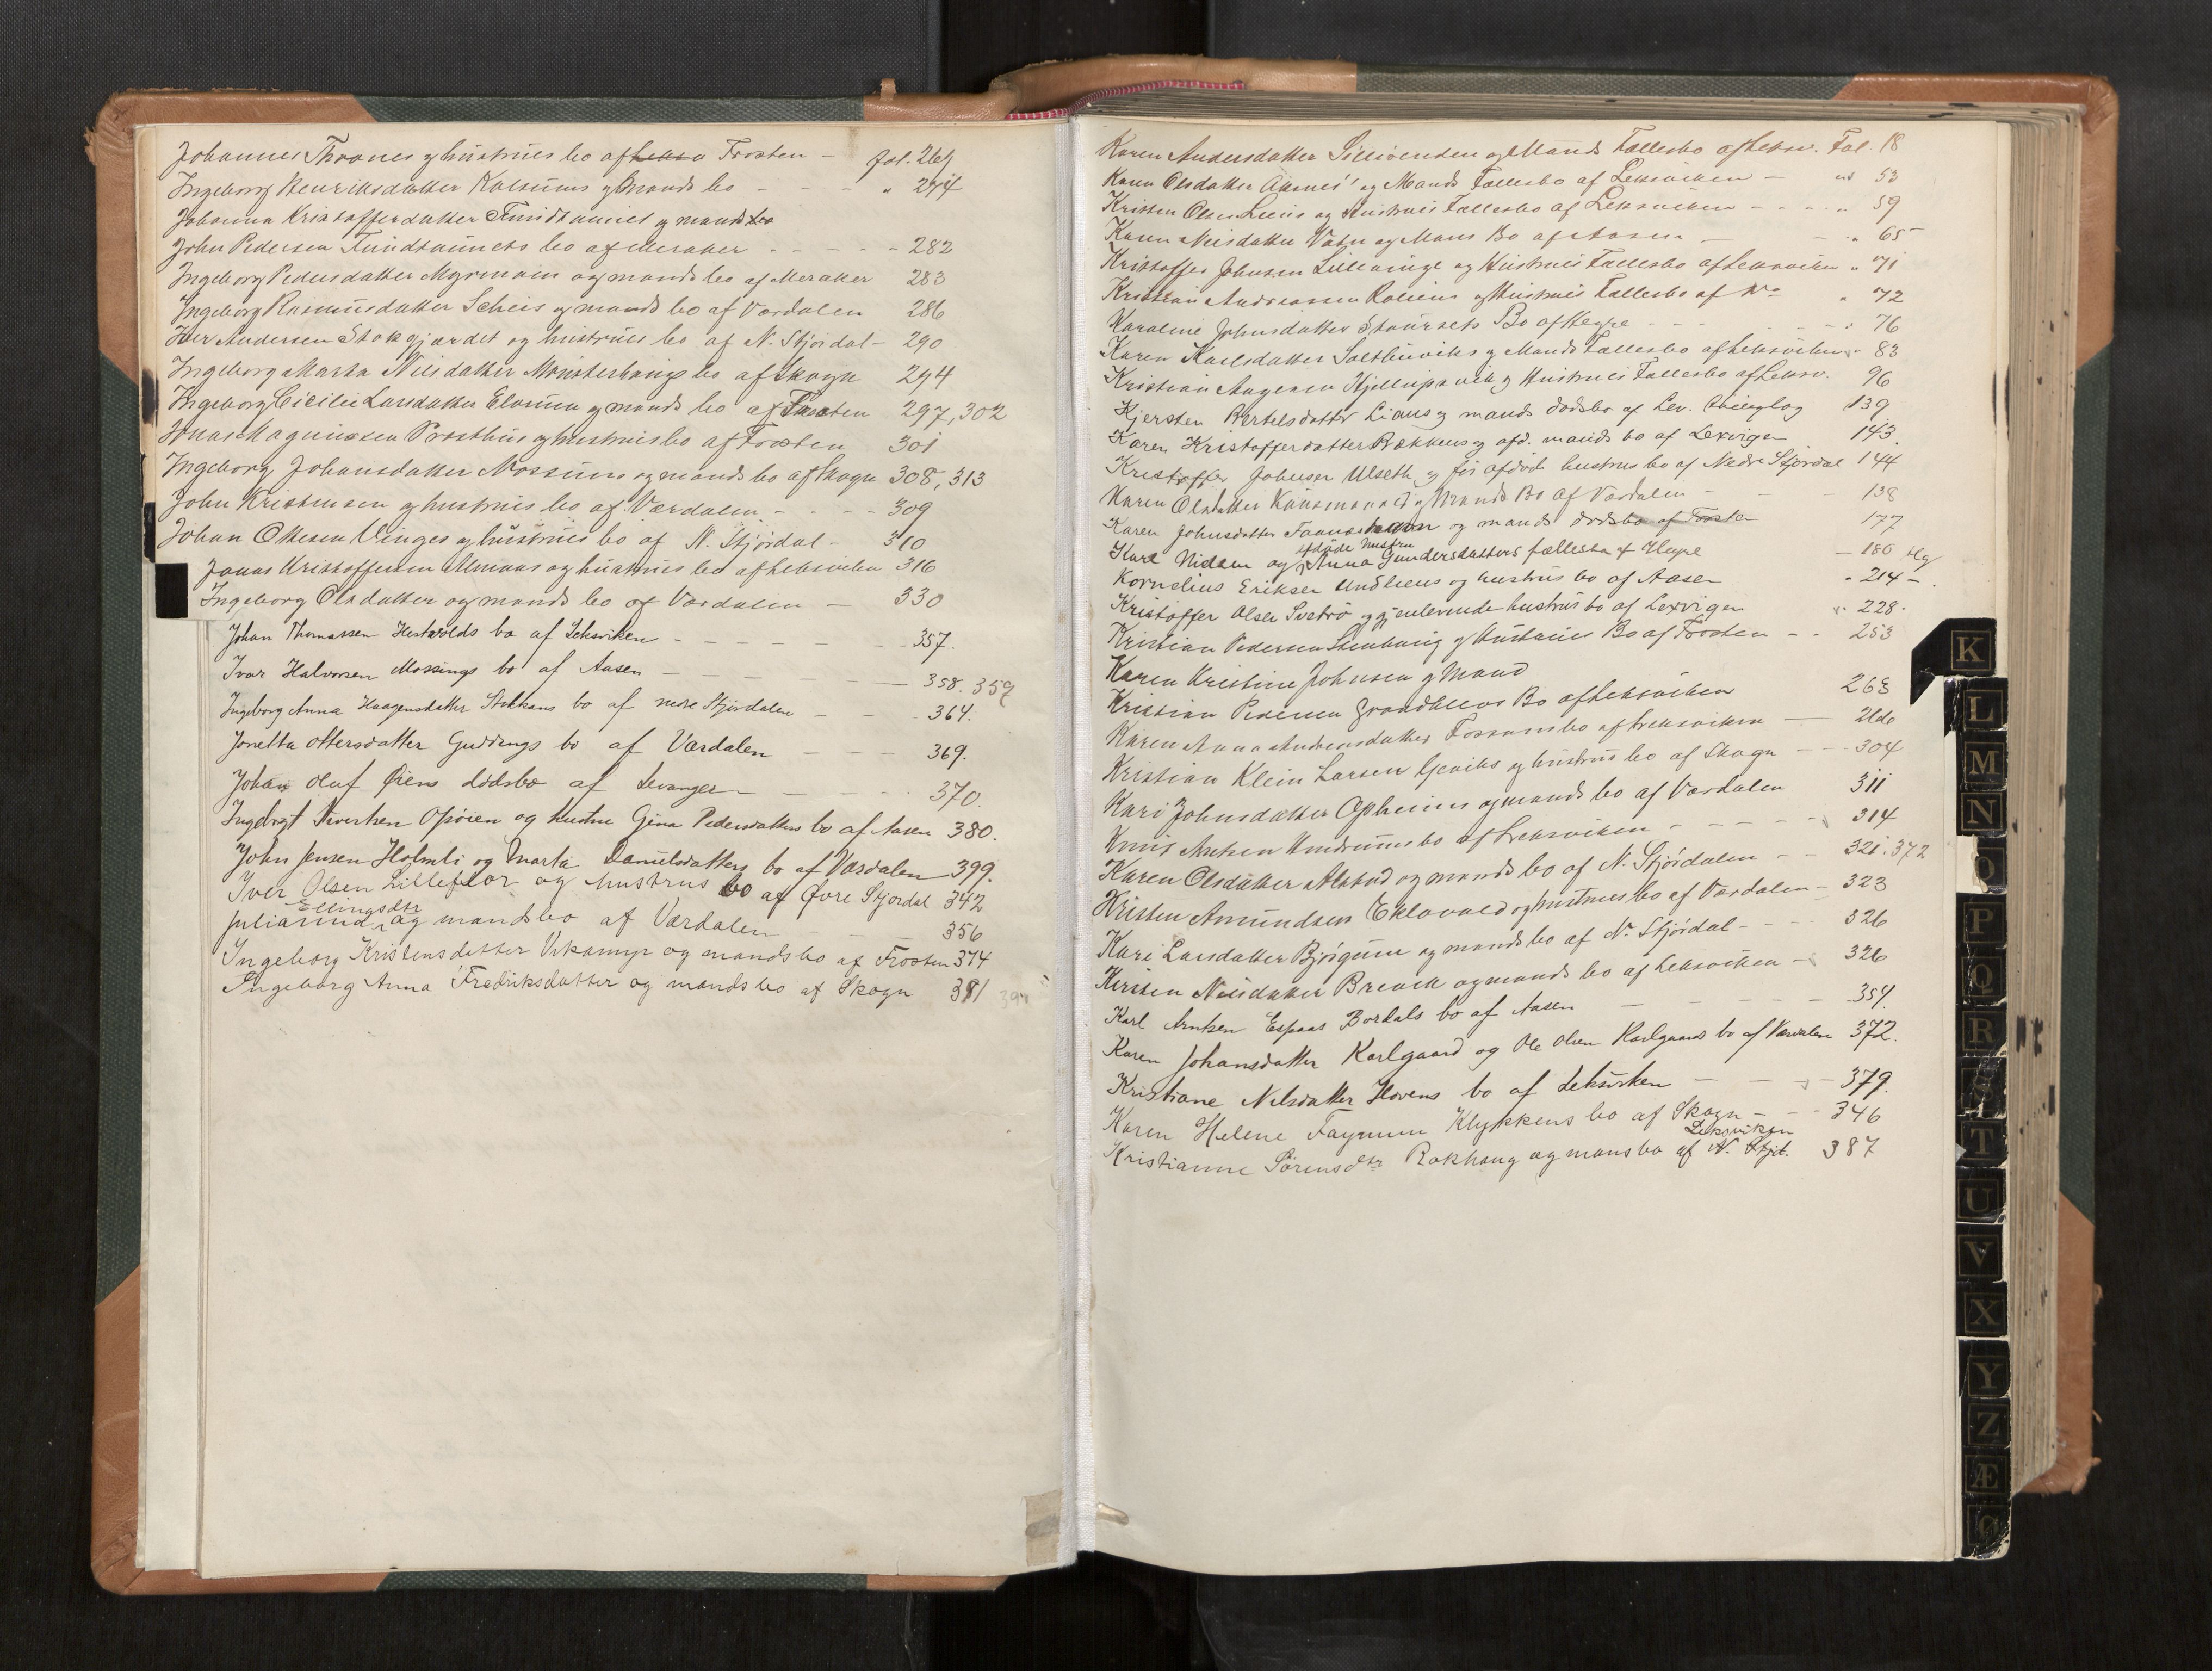 Johannes Thrones og hustrues bo af Leksv Frosten - fol. 269
Ingeborg Henriksdatter Kolsums og Mands bo - - - " 274
Johanna Kristofferdatter Tundtaunet og mands bo
John Pedersen Tundtaunets bo af Meraker - - - - - 282
Ingeborg Pedersdatter Myrmoen og mands bo af Meraker 283
Ingeborg Rasmusdatter Scheis og mands bo af Værdalen 286
Iver Andersen Stokgjærdet og hustrues bo af N. Stjørdal - 290
Ingeborg Marta Nilsdatter Mønsterhaugs bo af Skogn 294
Ingeborg Cicilie Larsdatter Elvrum og mands bo af Frosten 297, 302
Jonas Magnussen Præsthus og hustrues bo af Frosten 301
Ingeborg Johansdatter Nossum og mands bo af Skogn 308, 313
John Kristensen og hustrues bo af Værdalen - - - - 309
Johan Ottesen Vinges og hustrues bo af N. Stjørdal - 310
Jonas Kristoffersen Almaas og hustrues bo af Leksviken 316
Ingeborg Olsdatter og mands bo af Værdalen - 330
Johan Thomassen Hestvolds bo af Leksviken - - - - - 357.
Ivar Halvorsen Mossings bo af Aasen - - - - - 358. 359
Ingeborg Anna Haagensdatter Stokkans bo af nedre Stjørdalen - - - 364.
Jonetta Ottersdatter Guddings bo af Værdalen - - - 369.
Johan Oluf Øiens dødsbo af Levanger - - - - - 370.
Ingebrigt Sivertsen Opøien og hustru Gina Pedersdatters bo af Aasen 380.
John Jensen Holmli og Marta Danielsdatters bo af Værdalen 399.
Iver Olsen Lilleflor og hustrus bo af Øvre Stjørdal 342
Ellingsdtr
Julianna og mandsbo af Værdalen - - - 356
Ingeborg Kristensdatter Vikamyr og mandsbo af Frosten 374
Ingeborg Anna Fredriksdatter og mandsbo af Skogn 391
Karen Andersdatter og Mands Fællesbo af Leksv. Fol. 18
Karen Olsdatter Aanes' og Mands Fællesbo af Leksviken - " 53
Kristen Olsen Liens og Hustrues Fællesbo af Leksviken - - - - " 59
Karen Nilsdatter Vatn og Mans Bo af Aasen - - " 65
Kristoffer Johnsen og Hustrues Fællesbo af Leksviken " 71
Kristian Andreassen og Hustrues Fællesbo af " 72
Karoline Johnsdatter Staursets Bo af Hegre - - - - - " 76
Karen Karlsdatter Saltbuviks og Mands Fællesbo af Leksviken " 83
Kristian Aagesen Hjellupsvik og Hustrues Fællesbo af Leksv. 96
Kjersten Bertelsdatter Lians og mands dødsbo af Lev. 139
Karen Kristofferdatter Bækkens og afd. mands bo af Lexvigen 143.
Kristoffer Johnsen Ulseth og før afdøde hustrus bo af Nedre Stjørdal 144
Karen Olsdatter og Mands Bo af Værdalen - - 138
Karen Johnsdatter og mands dødsbo af Frosten 177
afdøde hustru
Karl Nidem og Anna Gundersdatters fællesbo af Hegre - 180
Kornelius Eriksen Undliens og hustrus bo af Aasen " 214 -
Kristoffer Olsen Svedrø og gjenlevende hustrus bo af Lexvigen " 228.
Kristian Pedersen Stenhaug og Hustrues Bo af Frosten - - 253
Karen Kristine Johnsen og Mand
Kristian Pedersen Grandkleivs Bo af Leksviken 268
Karen Anna Andreasdatter Fossums bo af Leksviken - 286
Kristian Klein Larsen Gjeviks og hustrues bo af Skogn - - - 304
Kari Johnsdatter Opheims og mands bo af Værdalen 311
Knut Arntsen Undrums bo af Leksviken - - - - - 314
Karen Olsdatter Alstad og mands bo af N. Stjørdalen - - 321. 372
Kristen Amundsen Eklovald og hustrues bo af Værdalen - 323
Kari Larsdatter Bjørgum og mands bo af N. Stjørdal - - - 326
Kirsten Nilsdatter Brevik og mands bo af Leksviken - 326
Karl Arntsen Espaas Bordals bo af Aasen - - - - - 354.
Karen Johansdatter Karlgaard og Ole Olsen Karlgaards bo af Værdalen 372.
Kristiane Nilsdatter Hovens bo af Leksviken - - - 379.
Karen Helene Faymum Klykkens bo af Skogn - - - 346
Leksviken
Kristianne Sørensdtr Rokhaug og mans bo af N. Stjd. 387
K
L
M
N
O
P
Q
R
S
T
U
V
X
Y
Z
Æ
Ø